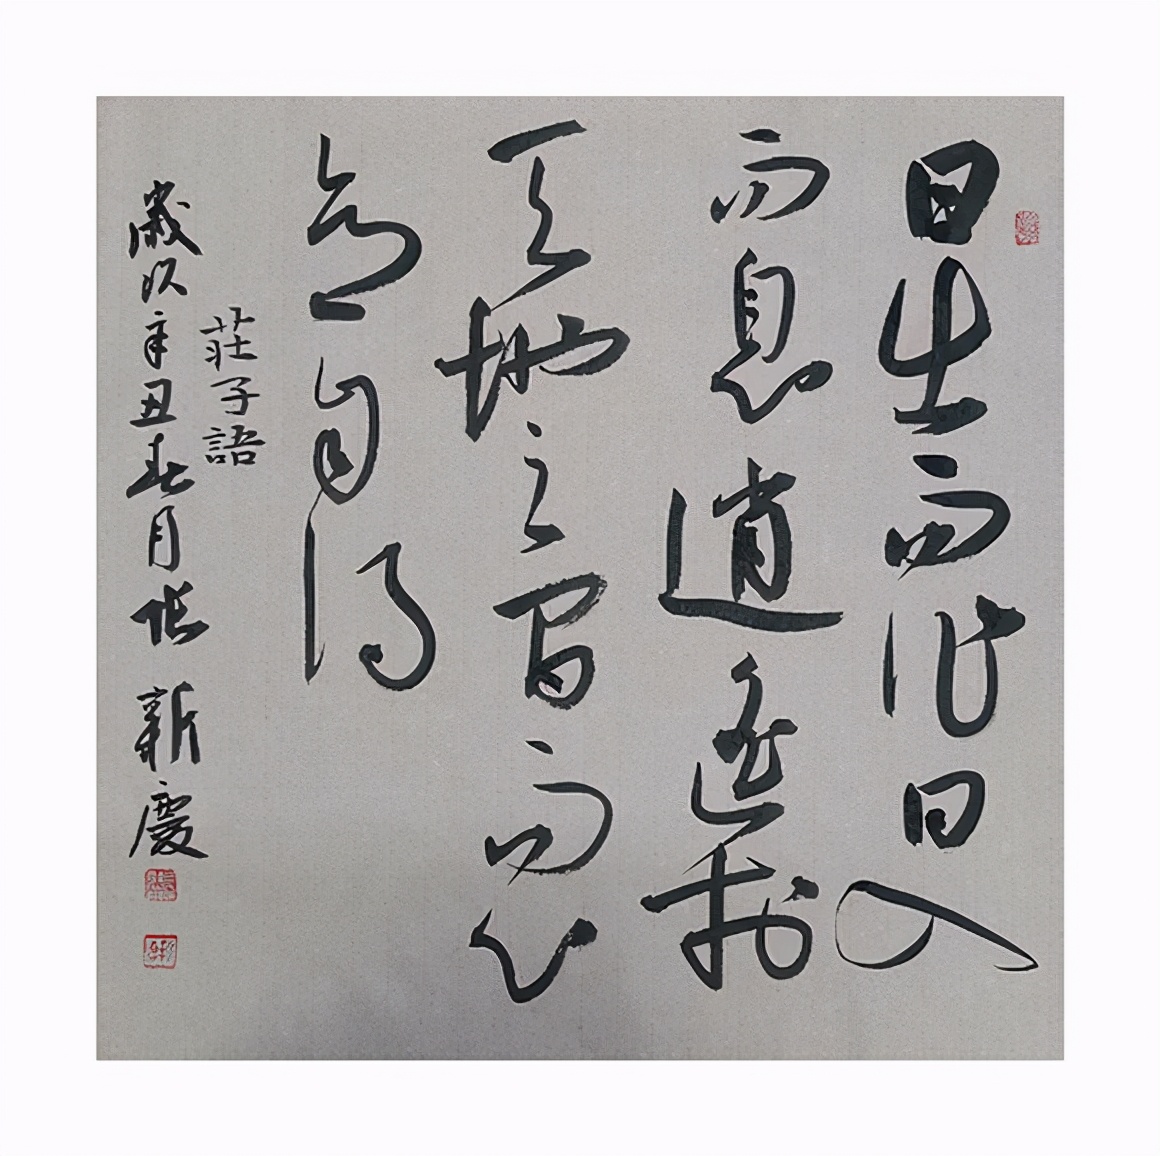 日出而作日入
而息逍遙於
天地之間而心
意自得
莊子語
歲次辛丑春月張新慶